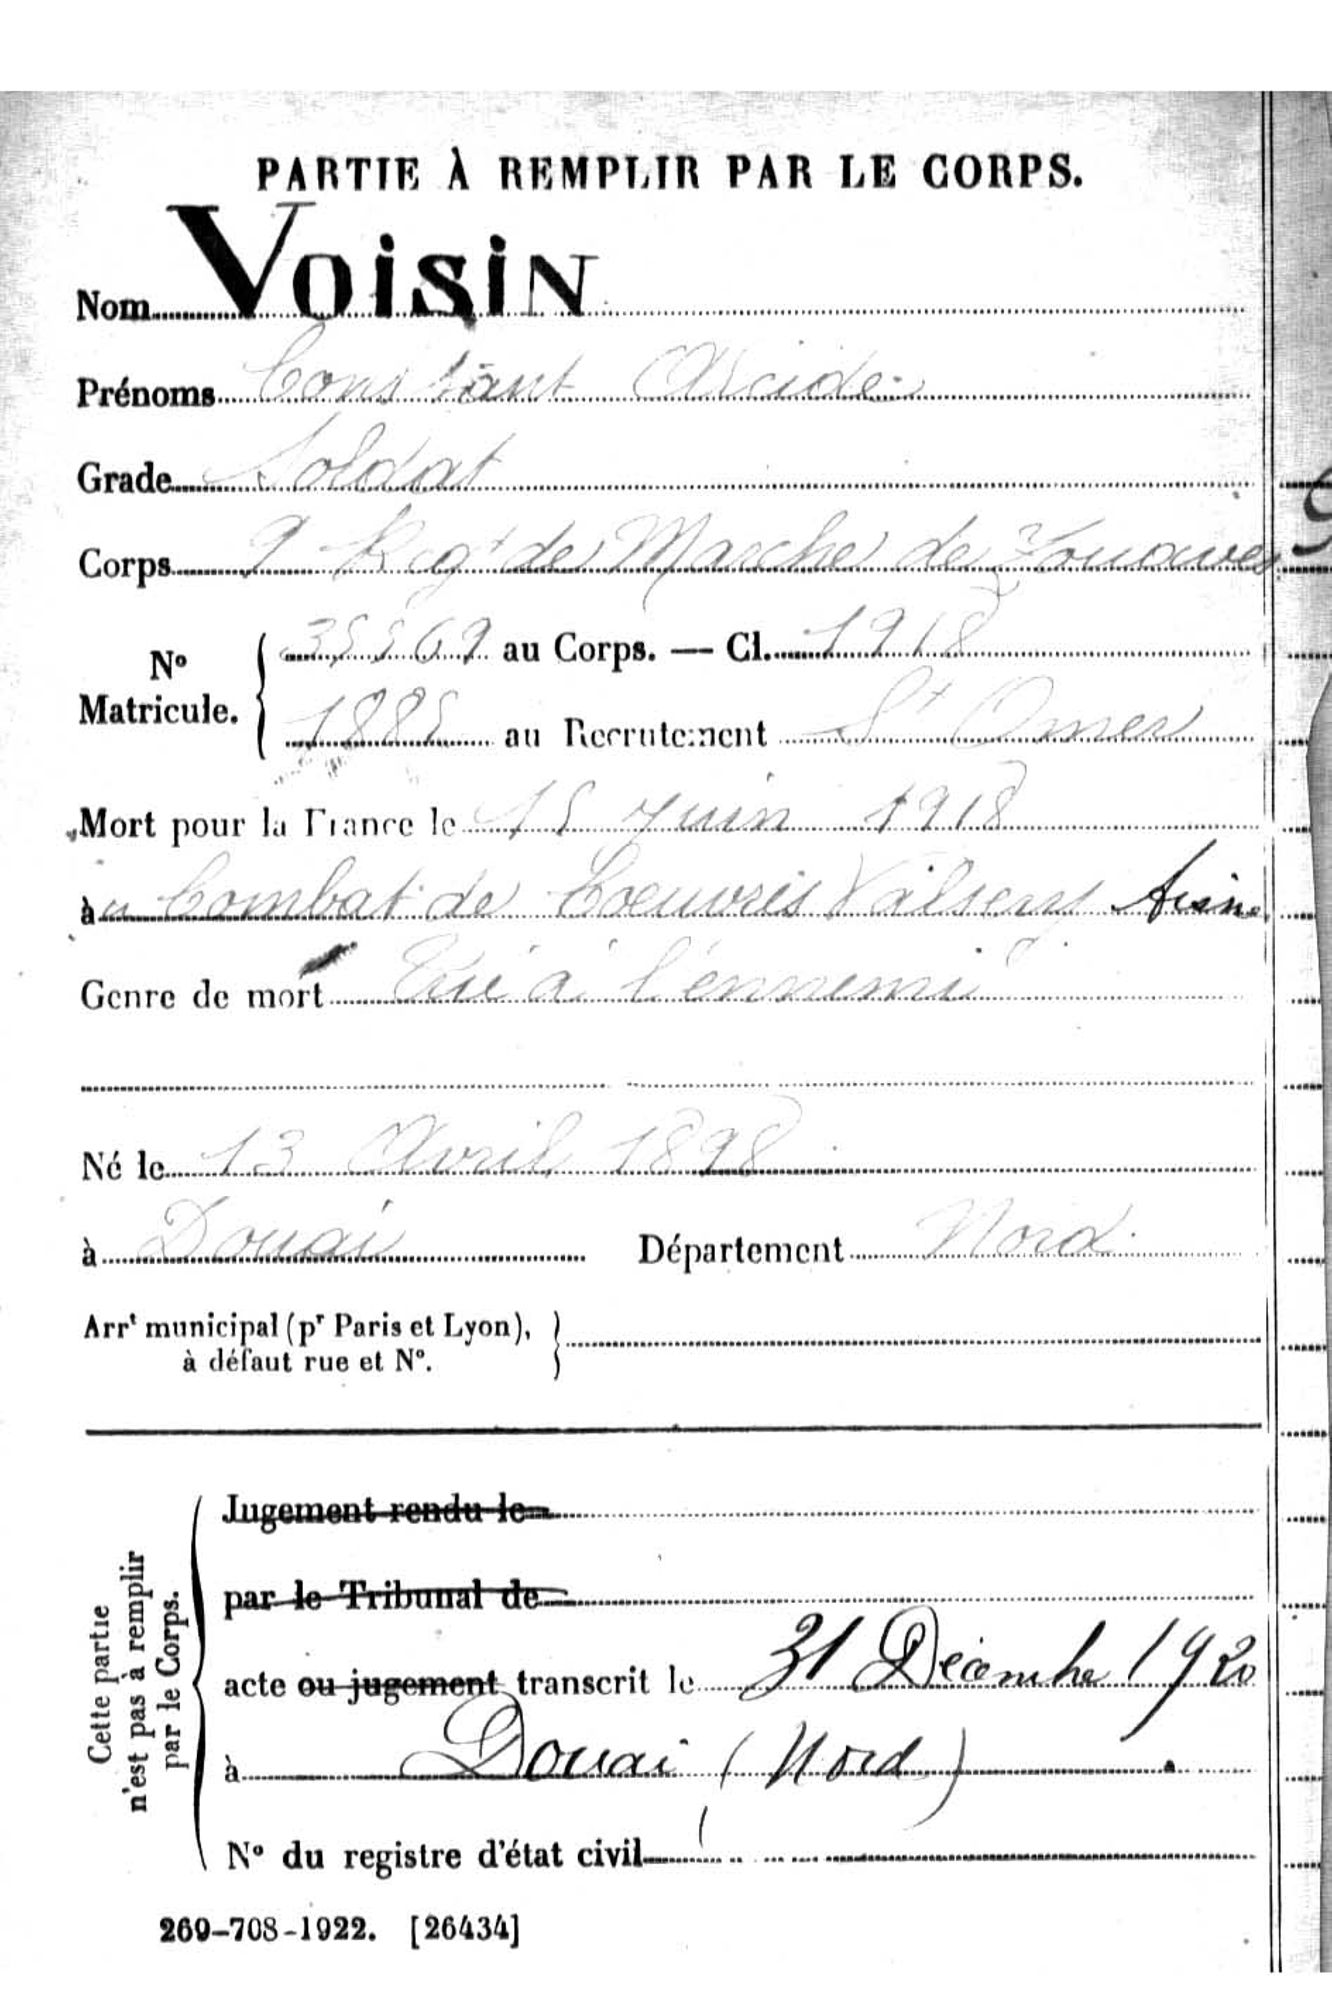 PARTIE À REMPLIR PAR LE CORPS.
Nom VOISIN
Prénoms Constant Alcide
Grade Soldat
Corps 9 Regt de Marche de Zouaves
No Matricule. 35569 au Corps. — Cl. 1918
1885 au Recrutement St Omer
Mort pour la France le 15 Juin 1918
à u Combat de Coeuvres Valsery Aisne
Genre de mort Tué à l'ennemi
Né le 13 Avril 1898
à Douai Département Nord
Arrt municipal (pr Paris et Lyon),
à défaut rue et No.
Cette partie
n'est pas à remplir
par le Corps.
Jugement rendu le
par le Tribunal de
acte ou jugement transcrit le 31 Décembre 1920
à Douai (Nord)
No du registre d'état civil
269-708-1922. [26434]